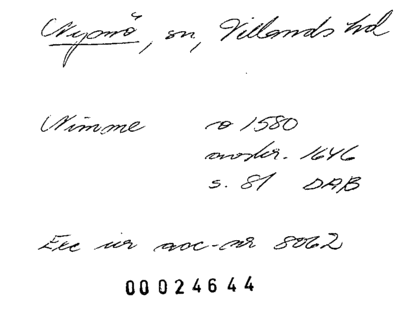 Nymö, sn, Villands hd
Nimme o 1580
avskr. 1646
s. 81 DAB
Exc ur acc-nr 8062
00024644